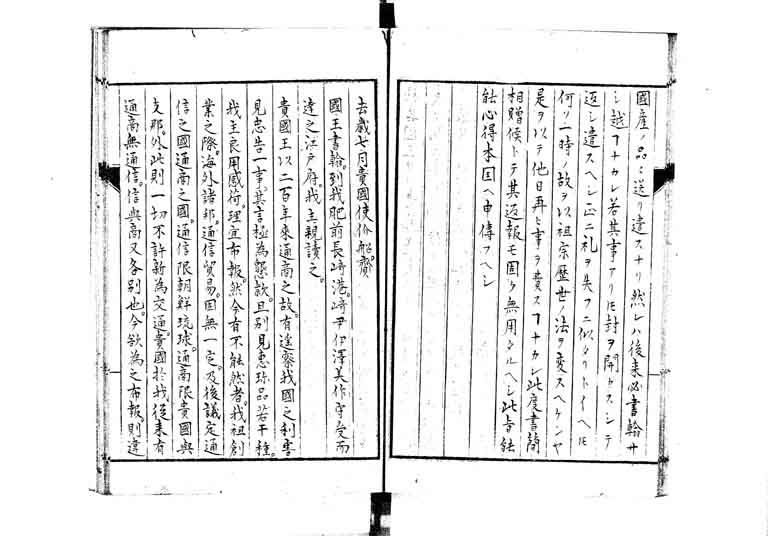 國産ノ品ニ送リ遣スナリ然レハ後来必書翰サ
シ越ヿナカレ若其事アリ𪜈封ヲ開カスシテ
返シ遣スヘシ正ニ礼ヲ失フニ似タリトイヘ𪜈
何ソ一時ノ故ヲ以祖宗歴世ノ法ヲ変スヘケンヤ
是ヲ以テ他日再ヒ事ヲ費スヿナカレ此度書簡
相贈候トテ其返報モ固ゟ無用タルヘシ此等能
能心得本国ヘ申傳フヘシ
去歳七月貴國使价船齎
國王書翰到我肥前長崎港。崎尹伊澤美作守受而
達之江戸府。我主親讀之。
貴國王以二百年來通商之故。有遙察我國之利害
見忠告一事。其言極為懇款。且別見惠珎品若干種。
我主良用感荷。理宜布報。然今有不能然者。我祖創
業之際。海外諸邦。通信貿易。固無一定。及後議定通
信之國通商之國。通信限朝鮮琉球。通商限貴國與
支那。外此則一切不許新為交通。貴國於我從來有
通商無通信。信與商又各別也。今欲為之布報。則違